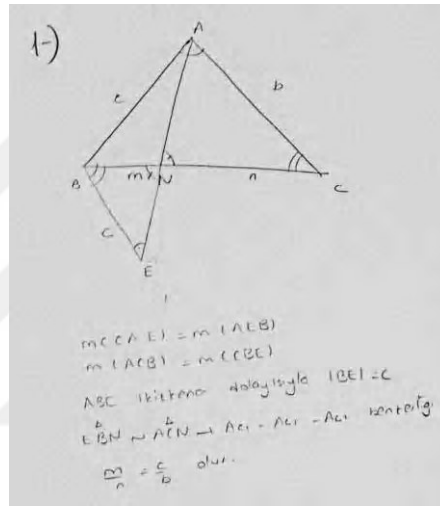 1-)
A
c
b
B
m
N
n
C
c
E
m(CAE) = m(AEB)
m(ACB) = m(CBE)
ABC ikizkenar dolayısıyla |BE| = c
EBN ~ ACN → Açı - Açı - Açı benzerliği
m/n = c/b olur.